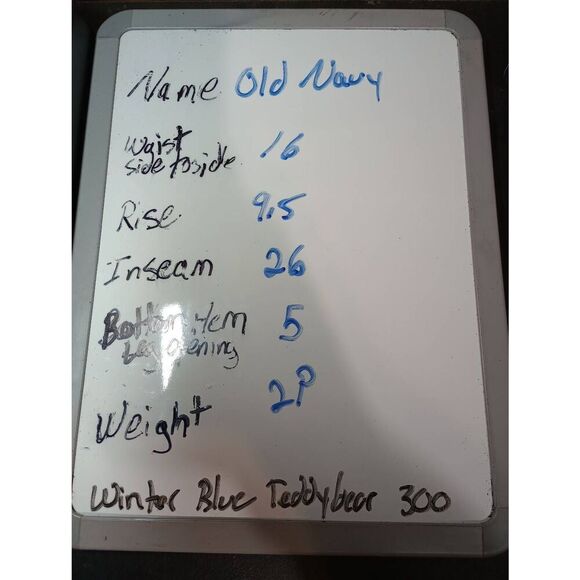 Name Old Navy
Waist
side to side 16
Rise 9.5
Inseam 26
Bottom Hem 5
Leg opening
Weight 2P
Winter Blue Teddybear 300